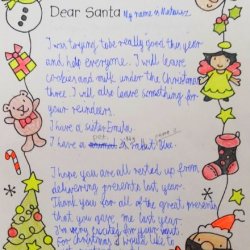 Dear Santa My name is Mateusz
I was trying to be really good this year
and help everyone. I will leave
cookies and milk under the Christmas
three. I will also leave something for
your reindeers.
I have a sister Emilia
I have a pet rabbit
I hope you are rested up from
delivering presents last year.
Thank you for all of the great presents
that you gave me last year.
I'm very excited for your visit.
For christmas I would like to